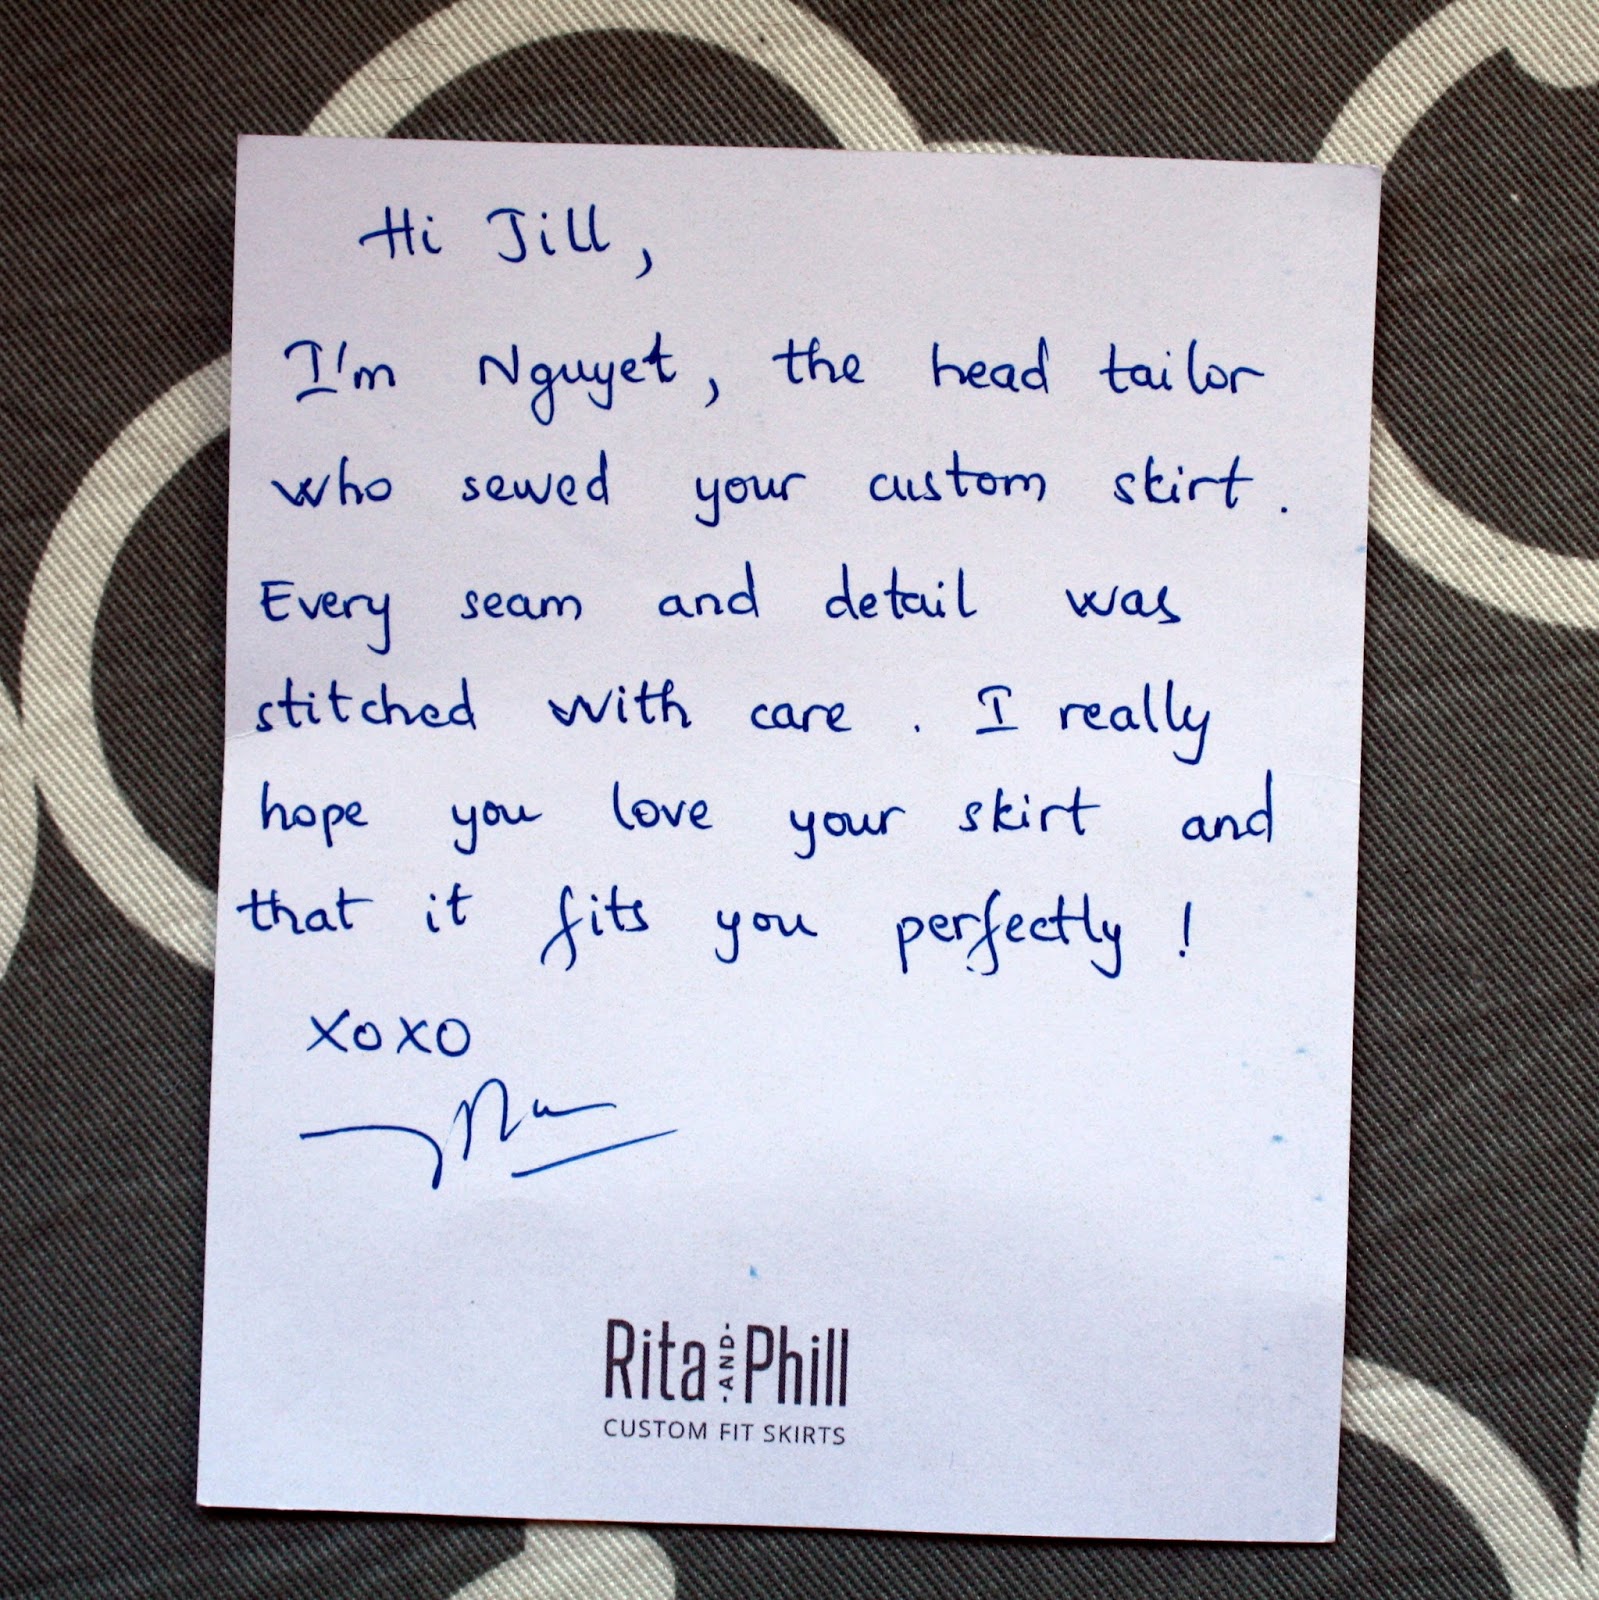 Hi Jill,
I'm Nguyet, the head tailor
who sewed your custom skirt.
Every seam and detail was
stitched with care. I really
hope you love your skirt and
that it fits you perfectly!
XOXO
Rita -AND- Phill
CUSTOM FIT SKIRTS